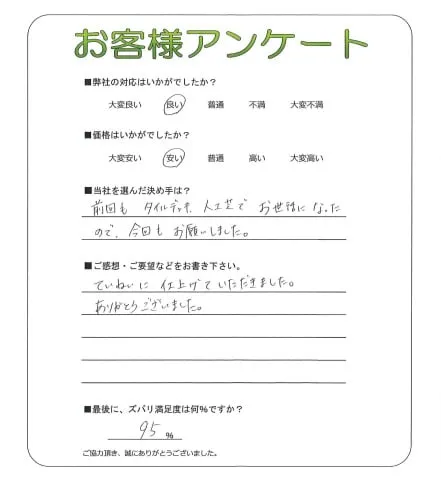 お客様アンケート
■弊社の対応はいかがでしたか？
大変良い 良い 普通 不満 大変不満
■価格はいかがでしたか？
大変安い 安い 普通 高い 大変高い
■当社を選んだ決め手は？
前回も タイルデッキ、人工芝で お世話になった
ので、今回も お願いしました。
■ご感想・ご要望などをお書き下さい。
ていねいに 仕上げて いただきました。
ありがとうございました。
■最後に、ズバリ満足度は何％ですか？
95 ％
ご協力頂き、誠にありがとうございました。